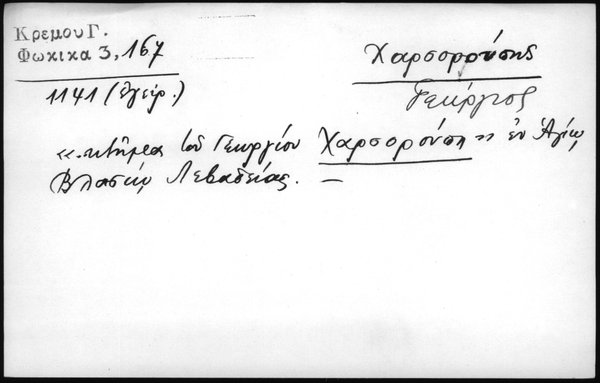 Κρεμου Γ.
Φωκικα 3, 167
Χαρσορούσης
Γεώργιος
1141 (ἔγγρ.)
«.κτῆμα τοῦ Γεωργίου Χαρσορούση» ἐν Ἁγίῳ
Βλασίῳ Λεβαδείας. —